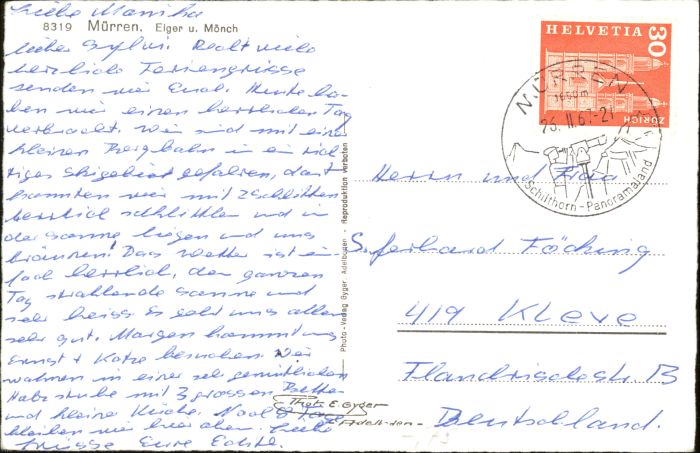 Liebe Monika
8319 Mürren. Eiger u. Mönch
lieber Sylvi. Recht viele
herzliche Feriengrüsse
senden wir Euch. Heute ha-
ben wir einen herrlichen Tag
verbracht. Wir sind mit einer
kleinen Bergbahn in ein rich
tiges Skigebiet gefahren, dort
konnten wir mit 2 Schlitten
herrlich schlitteln und in
der Sonne liegen und uns
bräunen! Das Wetter ist ein-
fach herrlich, den ganzen
Tag strahlende Sonne und
sehr heiss. Es geht uns allen
sehr gut. Morgen kommt uns
Ernst + besuchen. Wir
wohnen in einer sehr gemütlichen
stube mit 3 grossen Betten
und kleine Küche. Noch 8 Tage
bleiben wir hier oben. Liebe
Grüsse Eure
Photo-Verlag Gyger Adelboden - Reproduktion verboten
HELVETIA 30
ZÜRICH
MÜRREN
1650m
26. II. 67-21
Schilthorn - Panoramaland
Herrn und Frau
Föcking
419 Kleve
Flandrische str. 13
Deutschland.
E. Gyger
Adelboden